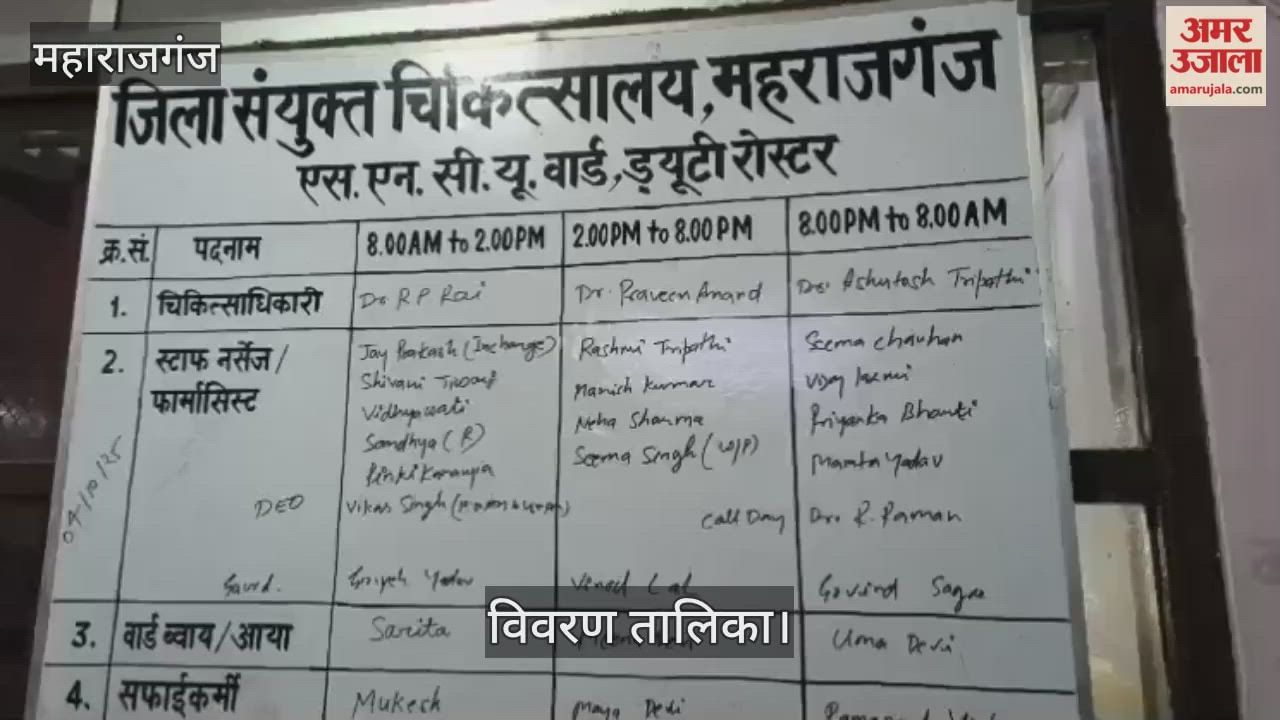 महाराजगंज
अमर
उजाला
amarujala.com
जिला संयुक्त चिकित्सालय, महराजगंज
एस. एन. सी. यू. वार्ड, ड्यूटी रोस्टर
क्र.सं. पदनाम 8.00AM to 2.00PM 2.00PM to 8.00PM 8.00PM to 8.00AM
1. चिकित्साधिकारी Dr R P Rai Dr. Praveen Anand Dr. Ashutosh Tripathi
2. स्टाफ नर्सेज/ Jay Prakash (Incharge) Rashmi Tripathi Seema Chauhan
फार्मासिस्ट Shivani Manish Kumar Vijay Laxmi
Vidhyawati Neha Sharma Priyanka Bharti
Sandhya (R) Seema Singh ( Mamta Yadav
Pinki
04/10/25
DEO Vikas Singh Call Day Dr. R. Raman
Gaurd. Yadav Vinod Lal Govind
3. वार्ड ब्वाय/आया Sarita Uma Devi
विवरण तालिका।
4. सफाईकर्मी Mukesh Maya Devi